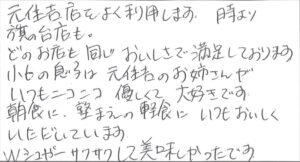 元住吉店をよく利用します。 時より
旗の台店も。
どのお店も同じ おいしさで満足しております
元住吉のお姉さんが
いつもニコニコ 優しくて 大好きです
朝食に、塾まえの軽食に いつもおいしく
いただいています
Wシュガー サクサクして美味しかったです